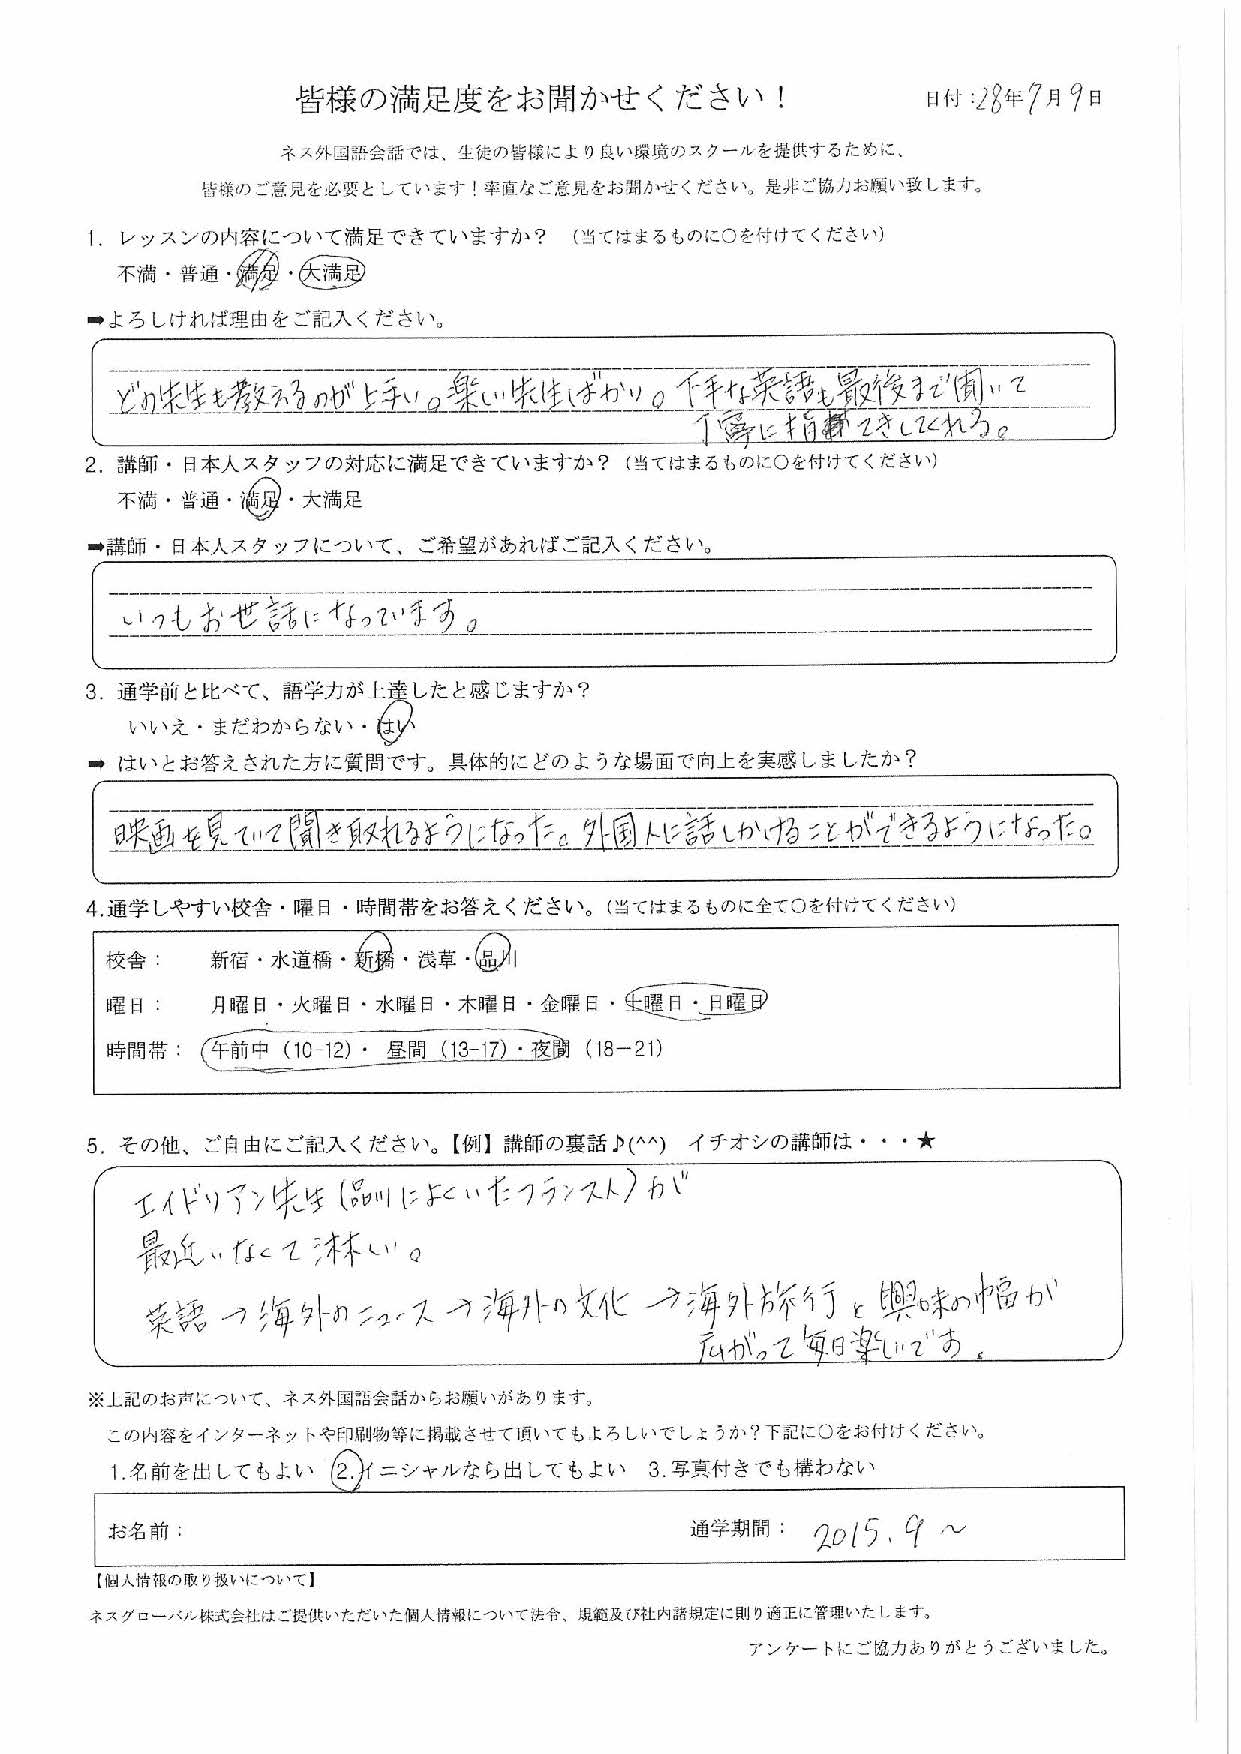 皆様の満足度をお聞かせください！
日付：28年7月9日
ネス外国語会話では、生徒の皆様により良い環境のスクールを提供するために、
皆様のご意見を必要としています！率直なご意見をお聞かせください。是非ご協力お願い致します。
1. レッスンの内容について満足できていますか？ （当てはまるものに〇を付けてください）
不満・普通・満足・大満足
➡よろしければ理由をご記入ください。
どの先生も教えるのが上手い。楽しい先生ばかり。下手な英語も最後まで聞いて
丁寧に指てきしてくれる。
2. 講師・日本人スタッフの対応に満足できていますか？（当てはまるものに〇を付けてください）
不満・普通・満足・大満足
➡講師・日本人スタッフについて、ご希望があればご記入ください。
いつもお世話になっています。
3. 通学前と比べて、語学力が上達したと感じますか？
いいえ・まだわからない・はい
➡ はいとお答えされた方に質問です。具体的にどのような場面で向上を実感しましたか？
映画を見ていて聞き取れるようになった。外国人に話しかけることができるようになった。
4.通学しやすい校舎・曜日・時間帯をお答えください。（当てはまるものに全て〇を付けてください）
校舎： 新宿・水道橋・新橋・浅草・品川
曜日： 月曜日・火曜日・水曜日・木曜日・金曜日・土曜日・日曜日
時間帯： 午前中（10-12）・ 昼間（13-17）・夜間（18－21）
5. その他、ご自由にご記入ください。【例】講師の裏話♪(^^) イチオシの講師は・・・★
エイドリアン先生（品川によくいたフランス人）が
最近いなくて淋しい。
英語→海外のニュース→海外の文化→海外旅行と興味の幅が
広がって毎日楽しいです。
※上記のお声について、ネス外国語会話からお願いがあります。
この内容をインターネットや印刷物等に掲載させて頂いてもよろしいでしょうか？下記に〇をお付けください。
1.名前を出してもよい 2.イニシャルなら出してもよい 3.写真付きでも構わない
お名前： 通学期間： 2015.9～
【個人情報の取り扱いについて】
ネスグローバル株式会社はご提供いただいた個人情報について法令、規範及び社内諸規定に則り適正に管理いたします。
アンケートにご協力ありがとうございました。